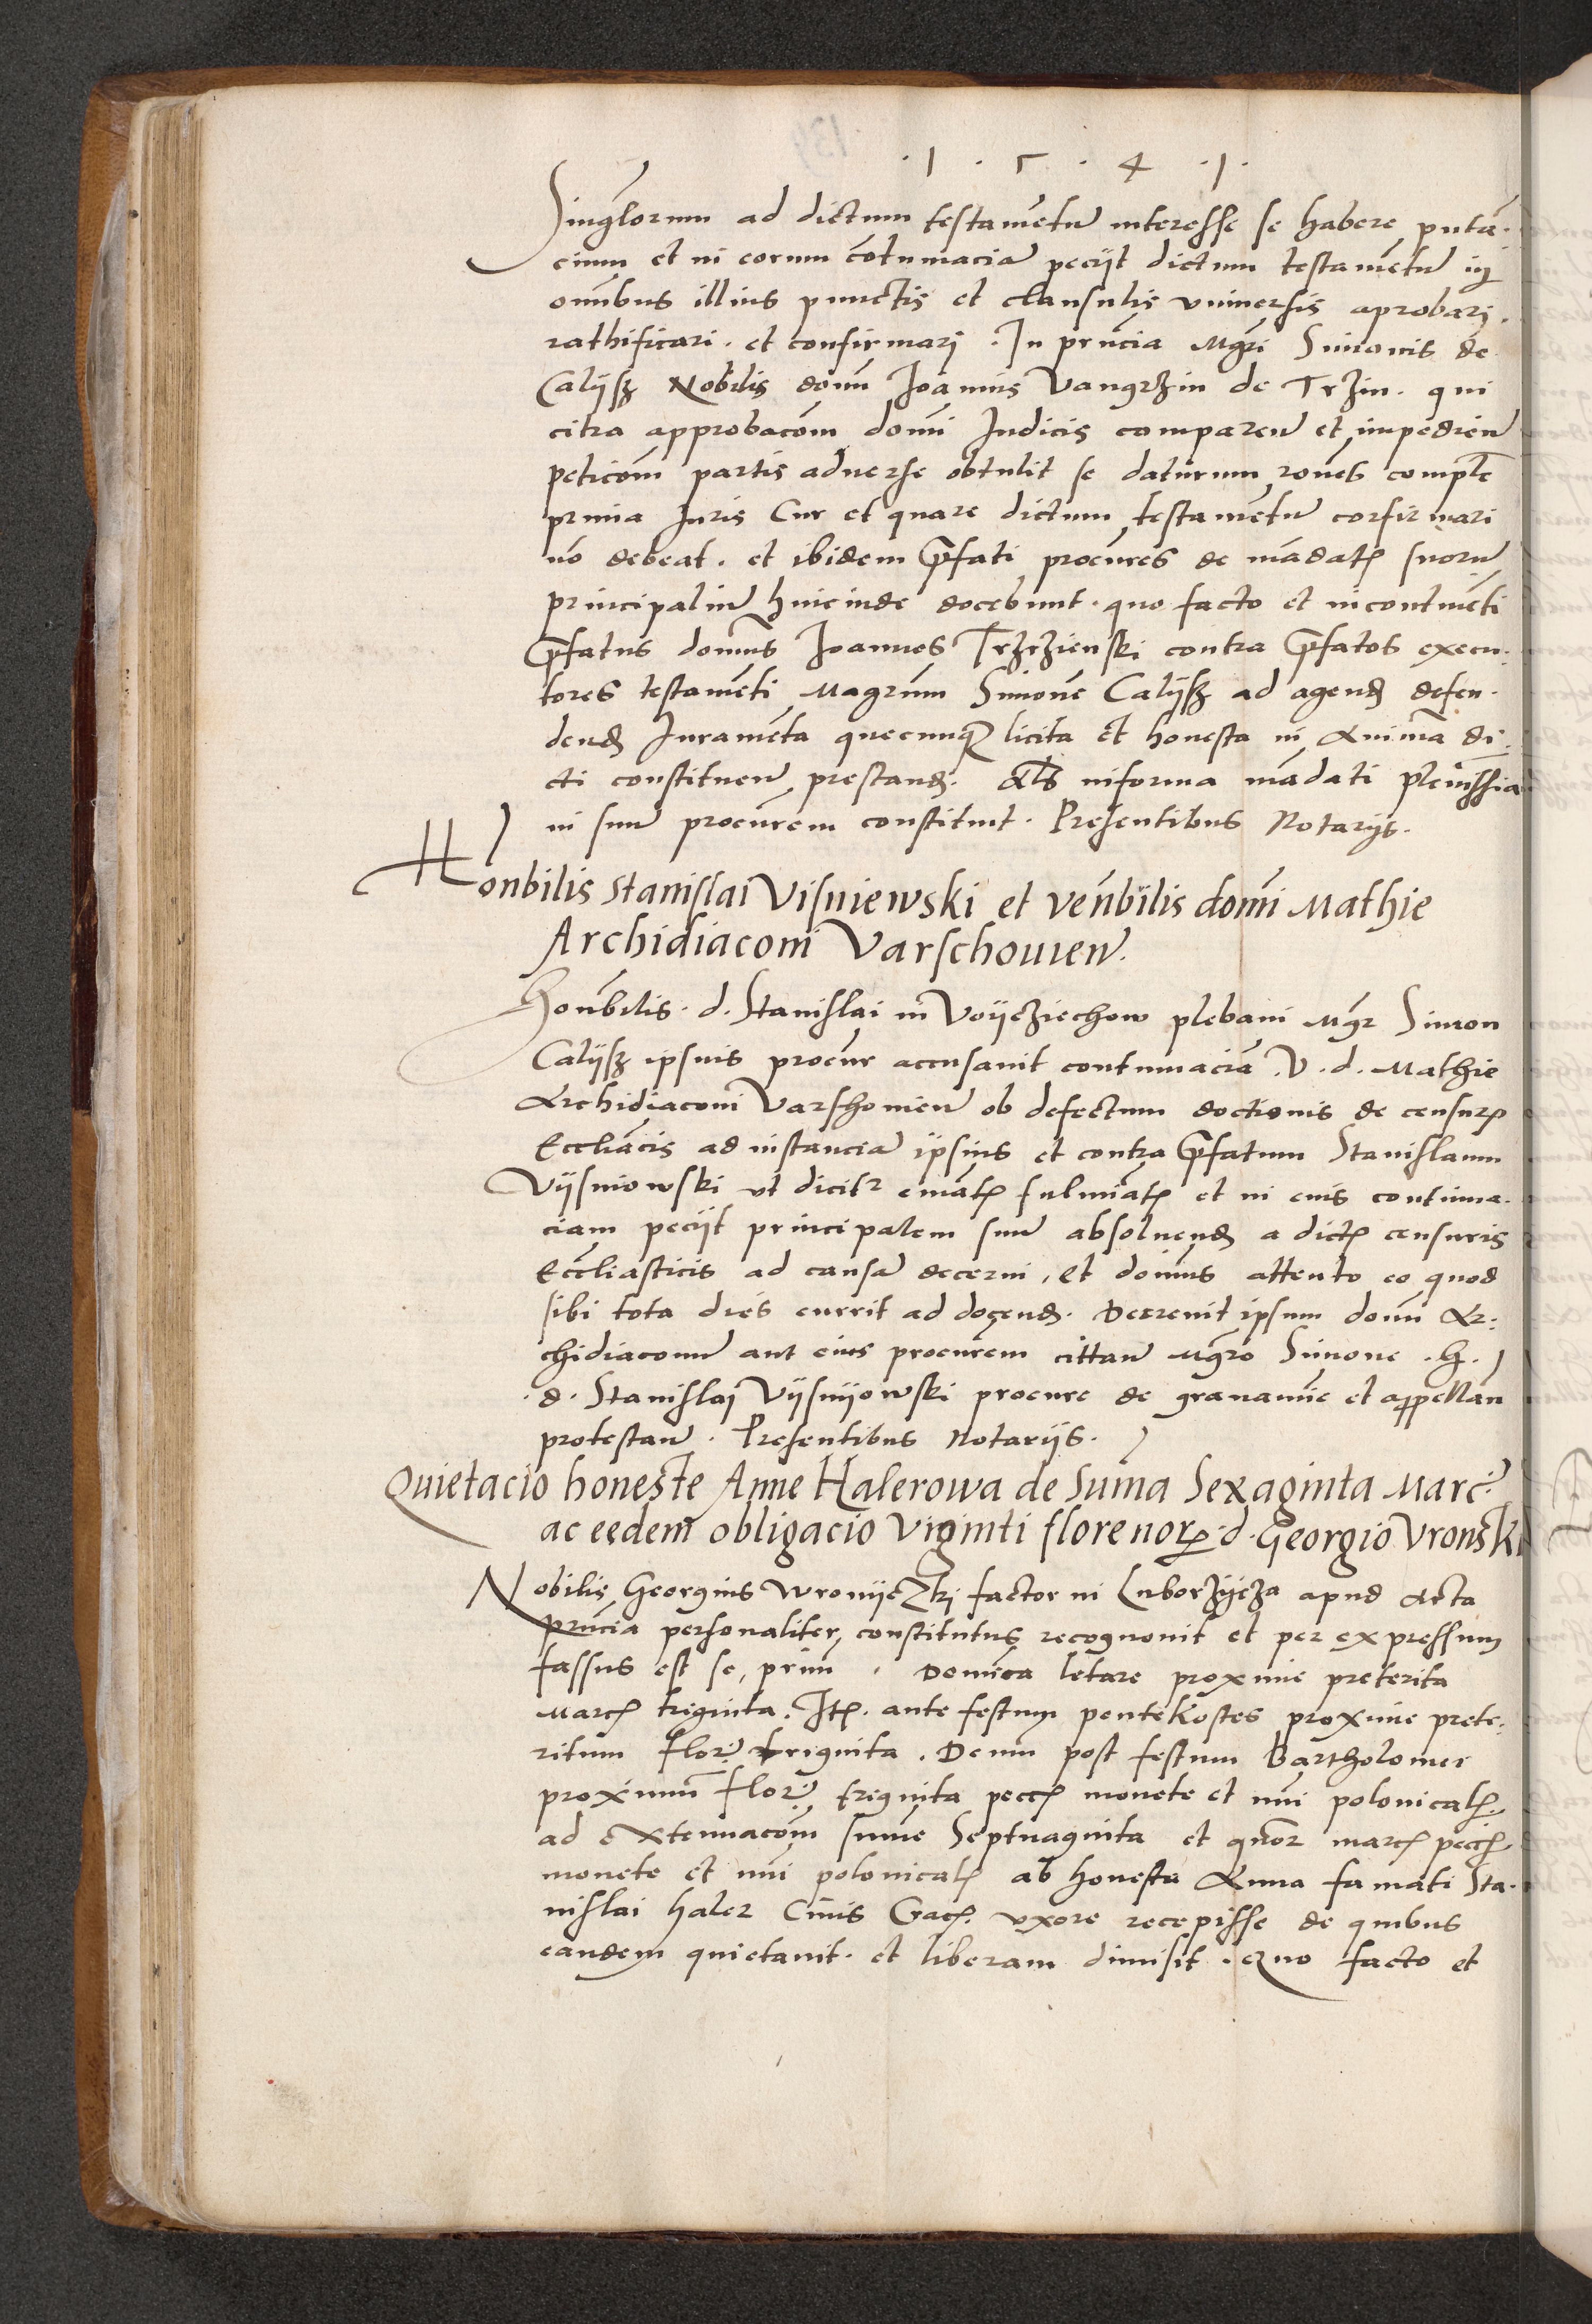 · 1 · 5 · 4 · 1 ·
Singlorum ad dictum testamētū interesse se habere putā-
cium et in eorum cōtumaciā peciit dictum testamētū in
omībus illius punctis et clausulis vniuersis aprobari
rathificari · et confirmari · In prn̄cia Mgr̄i Simonis de
Calijsz Nobilis domī Joannis Vangrzin de Trzin · qui
citra approbacōm domī Judicis comparen̄ et impedien̄
peticōm partis aduerse obtulit se daturum rōnes comple
Juris Cur et quare dictum testamētū confirmari
nō debeat · et ibidem p̄fati procūres de mādatis suorū
principaliū hincinde docebunt · quo facto et incontinēti
p̄fatus domīs Joannes Trzrzienski contra p̄fatos execu-
tores testamēti Magr̄um Simonē Calijsz ad agend̄ defen-
dend̄ Juramēta quecunq̄ licita et honesta in Animā di-
cti constituen̄ prestand̄ · als̄ informa mādati plenissia
in suū procūrem constituit · Presentibus Notarijs ·
Honbilis Stanislai Visniewski et ven̄bilis domī Mathie
Archidiaconi Varschouien̄ ·
Hon̄bilis · d · Stanislai in Voijcziechow plebani Mgr̄ Simon
Calijsz ipsius procūr accusauit contumaciā · V · d · Mathie
Archidiaconi Varshouien̄ ob defectum doctionis de censur̄
Eccl̄iacis ad instanciā ipsius et contra p̄fatum Stanislaum
Vijsniowski vt dicitr emāt̄ fulmiāt̄ et in eius contuma-
ciam peciit principalem suū absoluend̄ a dict̄ censuris
Eccl̄iasticis ad causā decerni · et domīs attento eo quod
sibi tota dies currit ad docend̄ · Decreuit ipsum domī Ar-
chidiaconū aut eius procūrem cittan̄ Mgr̄o Simone · H ·
· d · Stanislaj Vijsnijowski procūre de grauamīe et appellan̄
protestan̄ · Presentibus Notarijs ·
Quietacio honeste Anne Halerowa de Suma Sexaginta Marc̄
ac eedem obligacio Viginti florenor̄ · d · Georgio Vronski
Nobilis Georgius Wronijeczkj factor in Luborzijcza apud Acta
prn̄cia personaliter constitutus recognouit et per expressum
fassus est se, prim̄ · Domīca letare proxime preterita
Marc̄ triginta · It̄ · ante festum pentekostes proxime prete-
ritum flor̄ triginta · Demū post festum Bartholomei
proximū flor̄ triginta pecc̄ monete et nūi polonical̄
ad extenuacōm sume Septuaginta et qūor marc̄ pecc̄
monete et nūi polonical̄ ab honesta Anna famati Sta-
nislai haler Ciuis Crac̄ · vxore recepisse de quibus
eandem quietauit · et liberam dimisit · Quo facto et